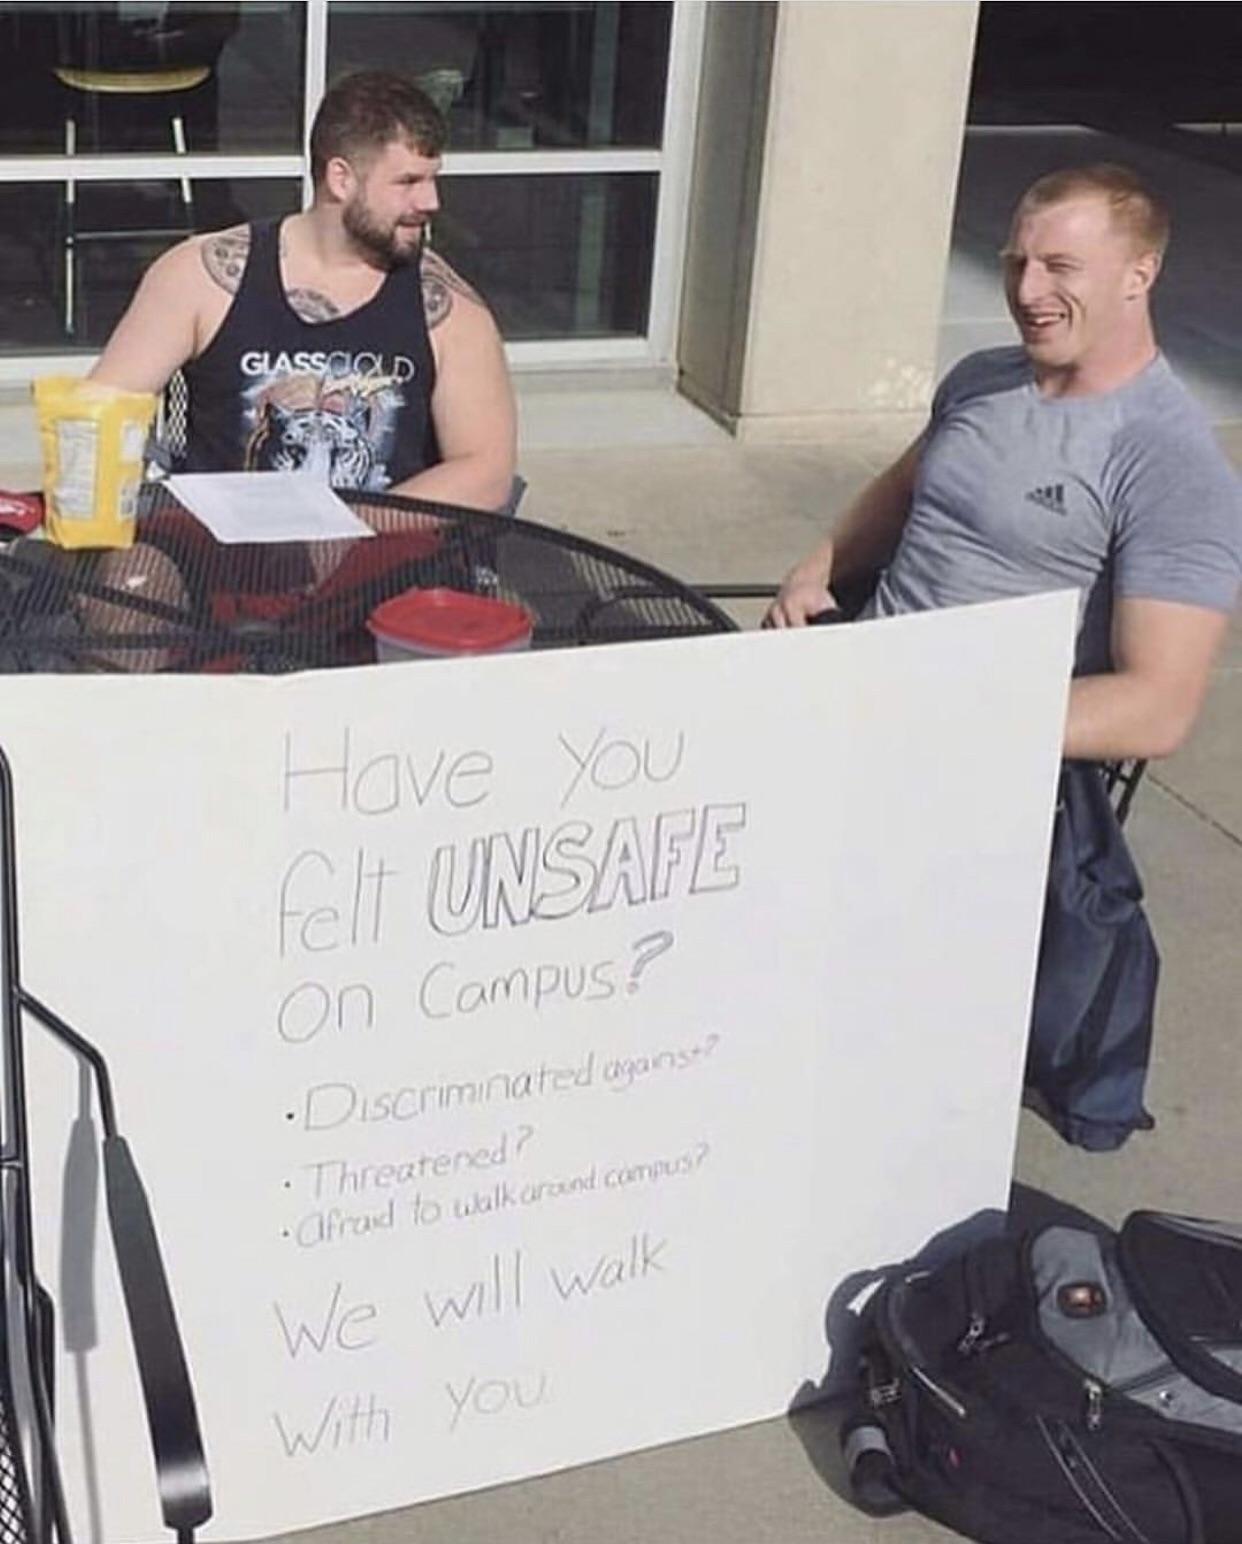 GLASSCLOUD
Have you
felt UNSAFE
on Campus?
• Discriminated against?
• Threatened?
• afraid to walk around campus?
We will walk
with you.